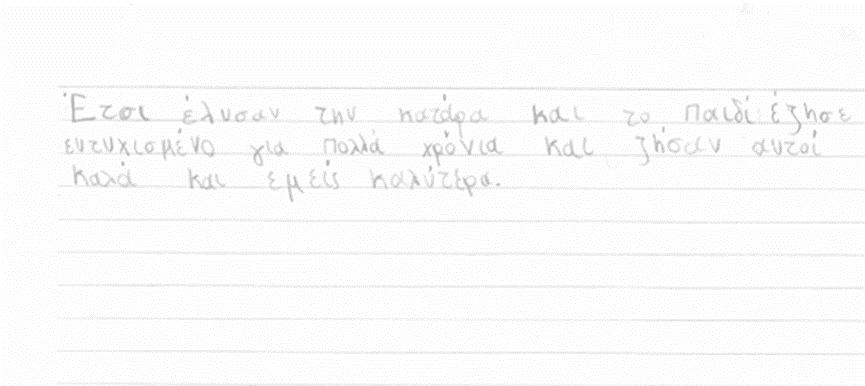 Έτσι έλυσαν την κατάρα και το παιδί έζησε
ευτυχισμένο για πολλά χρόνια και ζήσαν αυτοί
καλά και εμείς καλύτέρα.